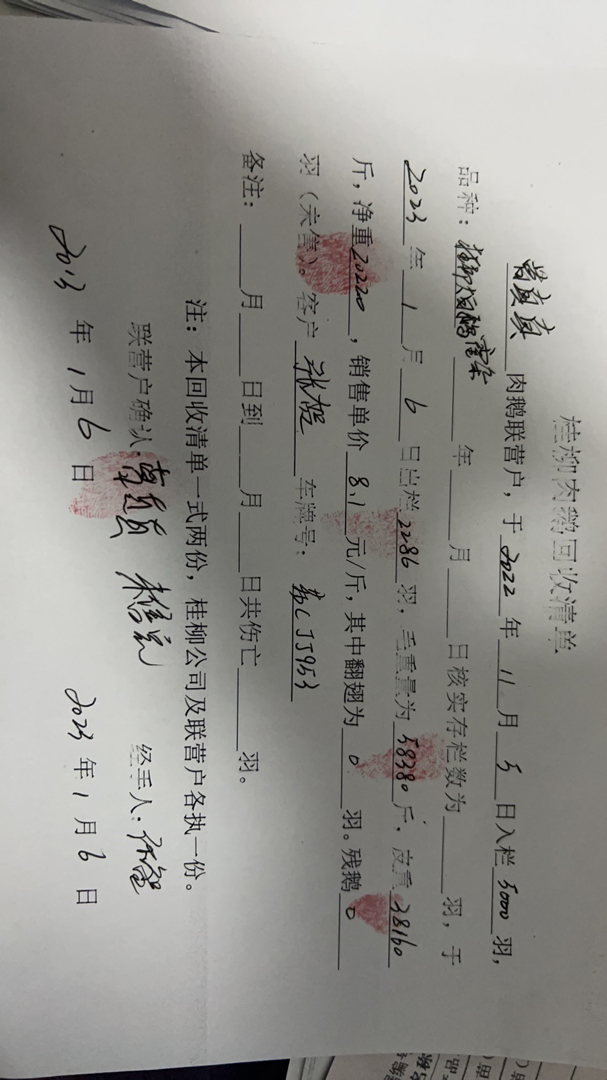 桂柳肉鹅回收清单
肉鹅联营户，于 2022 年 11 月 5 日入栏 5000 羽，
品种： 年 月 日核实存栏数为 羽，于
2023 年 1 月 6 日出栏 2286 羽，毛重量为 58380 斤，皮重 38160
斤，净重 20220 ，销售单价 8.1 元/斤，其中翻翅为 0 羽。残鹅 0
羽（夹信）。客户 张超 车牌号： JJ953
备注： 月 日到 月 日共伤亡 羽。
注：本回收清单一式两份，桂柳公司及联营户各执一份。
联营户确认： 经手人：
2023 年 1 月 6 日 2023 年 1 月 6 日